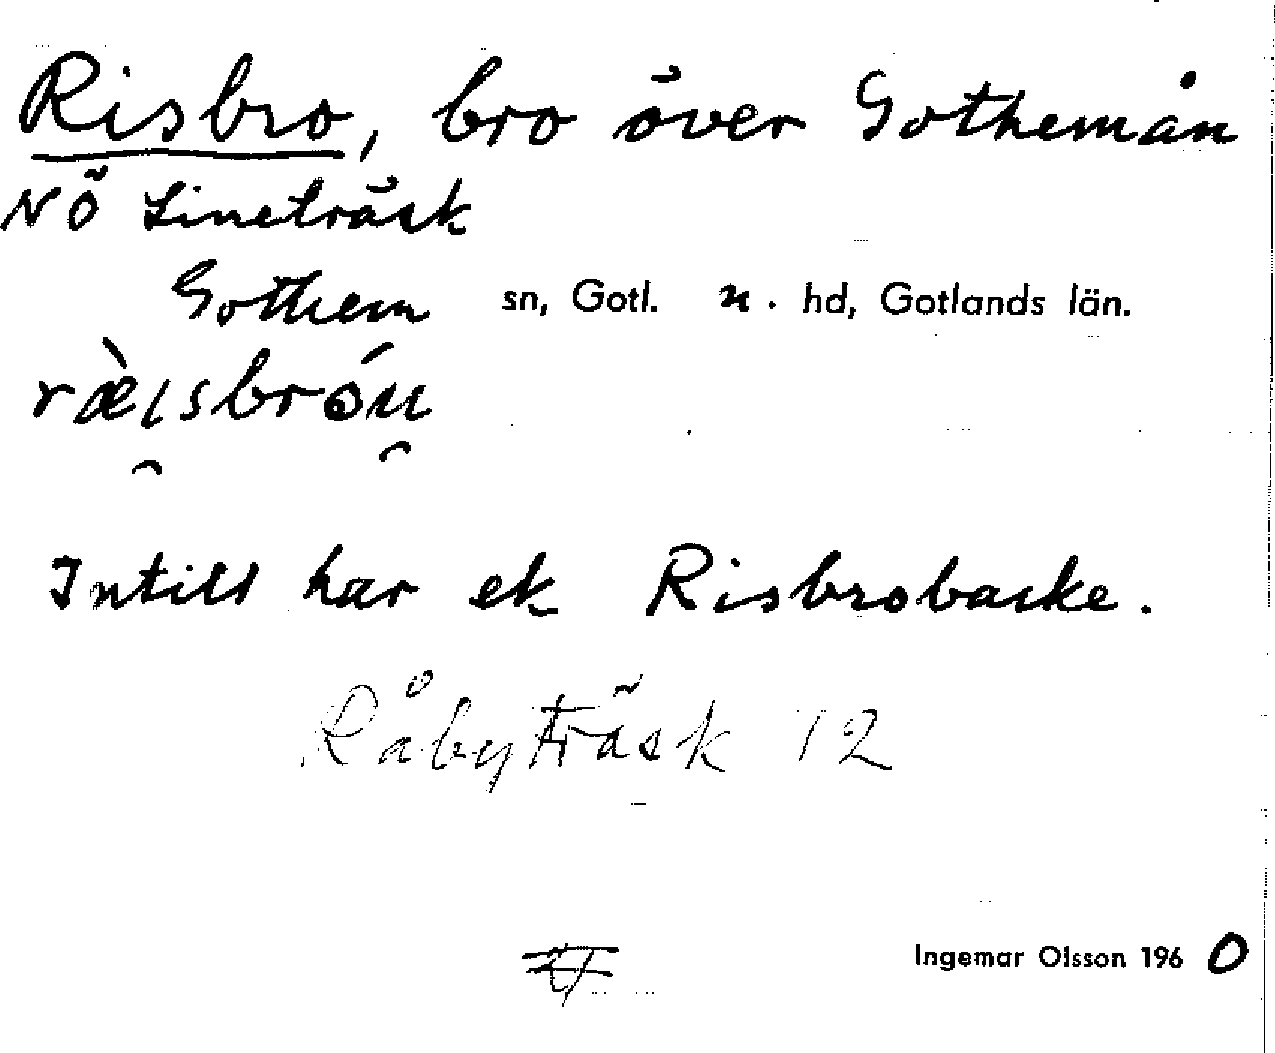 Risbro, bro över Gothemån
NÖ Lineträsk
Gothem sn, Gotl. n. hd, Gotlands län.
ræ̀i̯sbróu̯
Intill har ek Risbrobacke.
Råbyträsk 12
Ingemar Olsson 1960